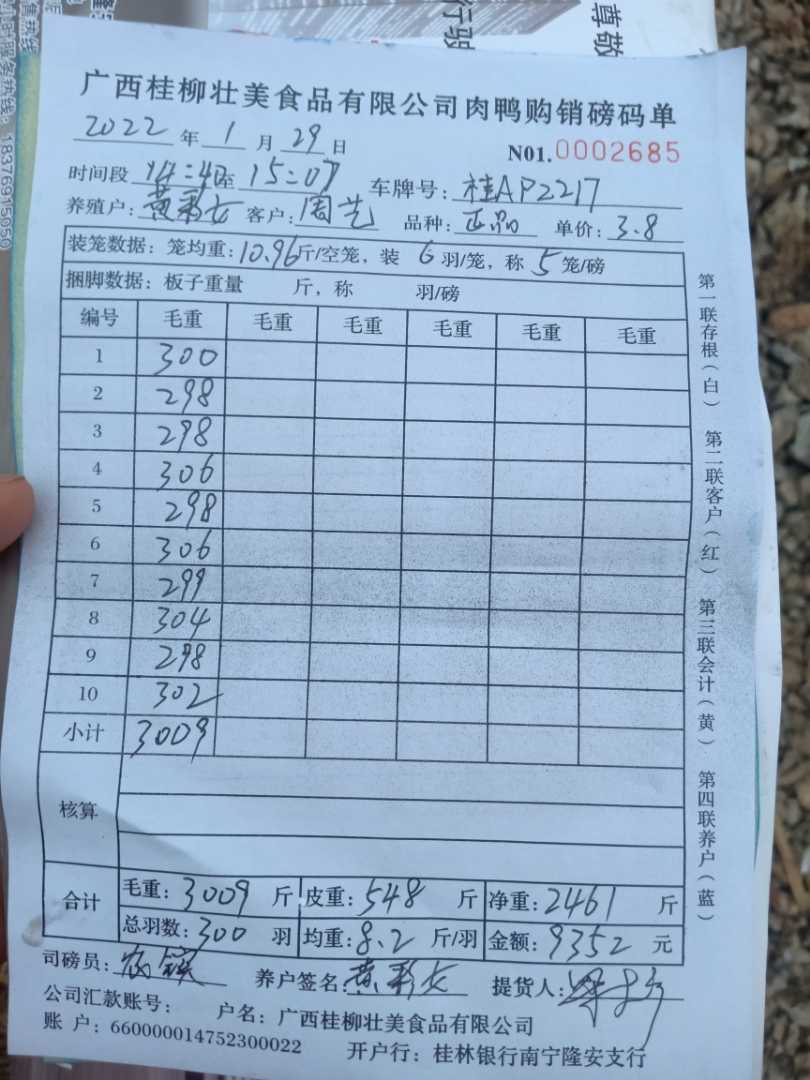 尊敬
行驶
18376915050
广西桂柳壮美食品有限公司肉鸭购销磅码单
2022 年 1 月 29 日 N01.0002685
时间段 14:40 至 15:07 车牌号: 桂AP2217
养殖户: 黄彩女 客户: 周艺 品种: 正品 单价: 3.8
装笼数据: 笼均重: 10.96 斤/空笼, 装 6 羽/笼, 称 5 笼/磅
捆脚数据: 板子重量 斤, 称 羽/磅
编号 毛重 毛重 毛重 毛重 毛重 毛重
1 300
2 298
3 298
4 306
5 298
6 306
7 299
8 304
9 298
10 302
小计 3009
核算
合计 毛重: 3009 斤 皮重: 548 斤 净重: 2461 斤
总羽数: 300 羽 均重: 8.2 斤/羽 金额: 9352 元
司磅员: 养户签名: 黄彩女 提货人:
公司汇款账号: 户名: 广西桂柳壮美食品有限公司
账 户: 660000014752300022 开户行: 桂林银行南宁隆安支行
第一联存根(白) 第二联客户(红) 第三联会计(黄) 第四联养户(蓝)